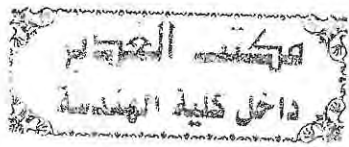 مكتب العدبر
داخل كلية الهندسة